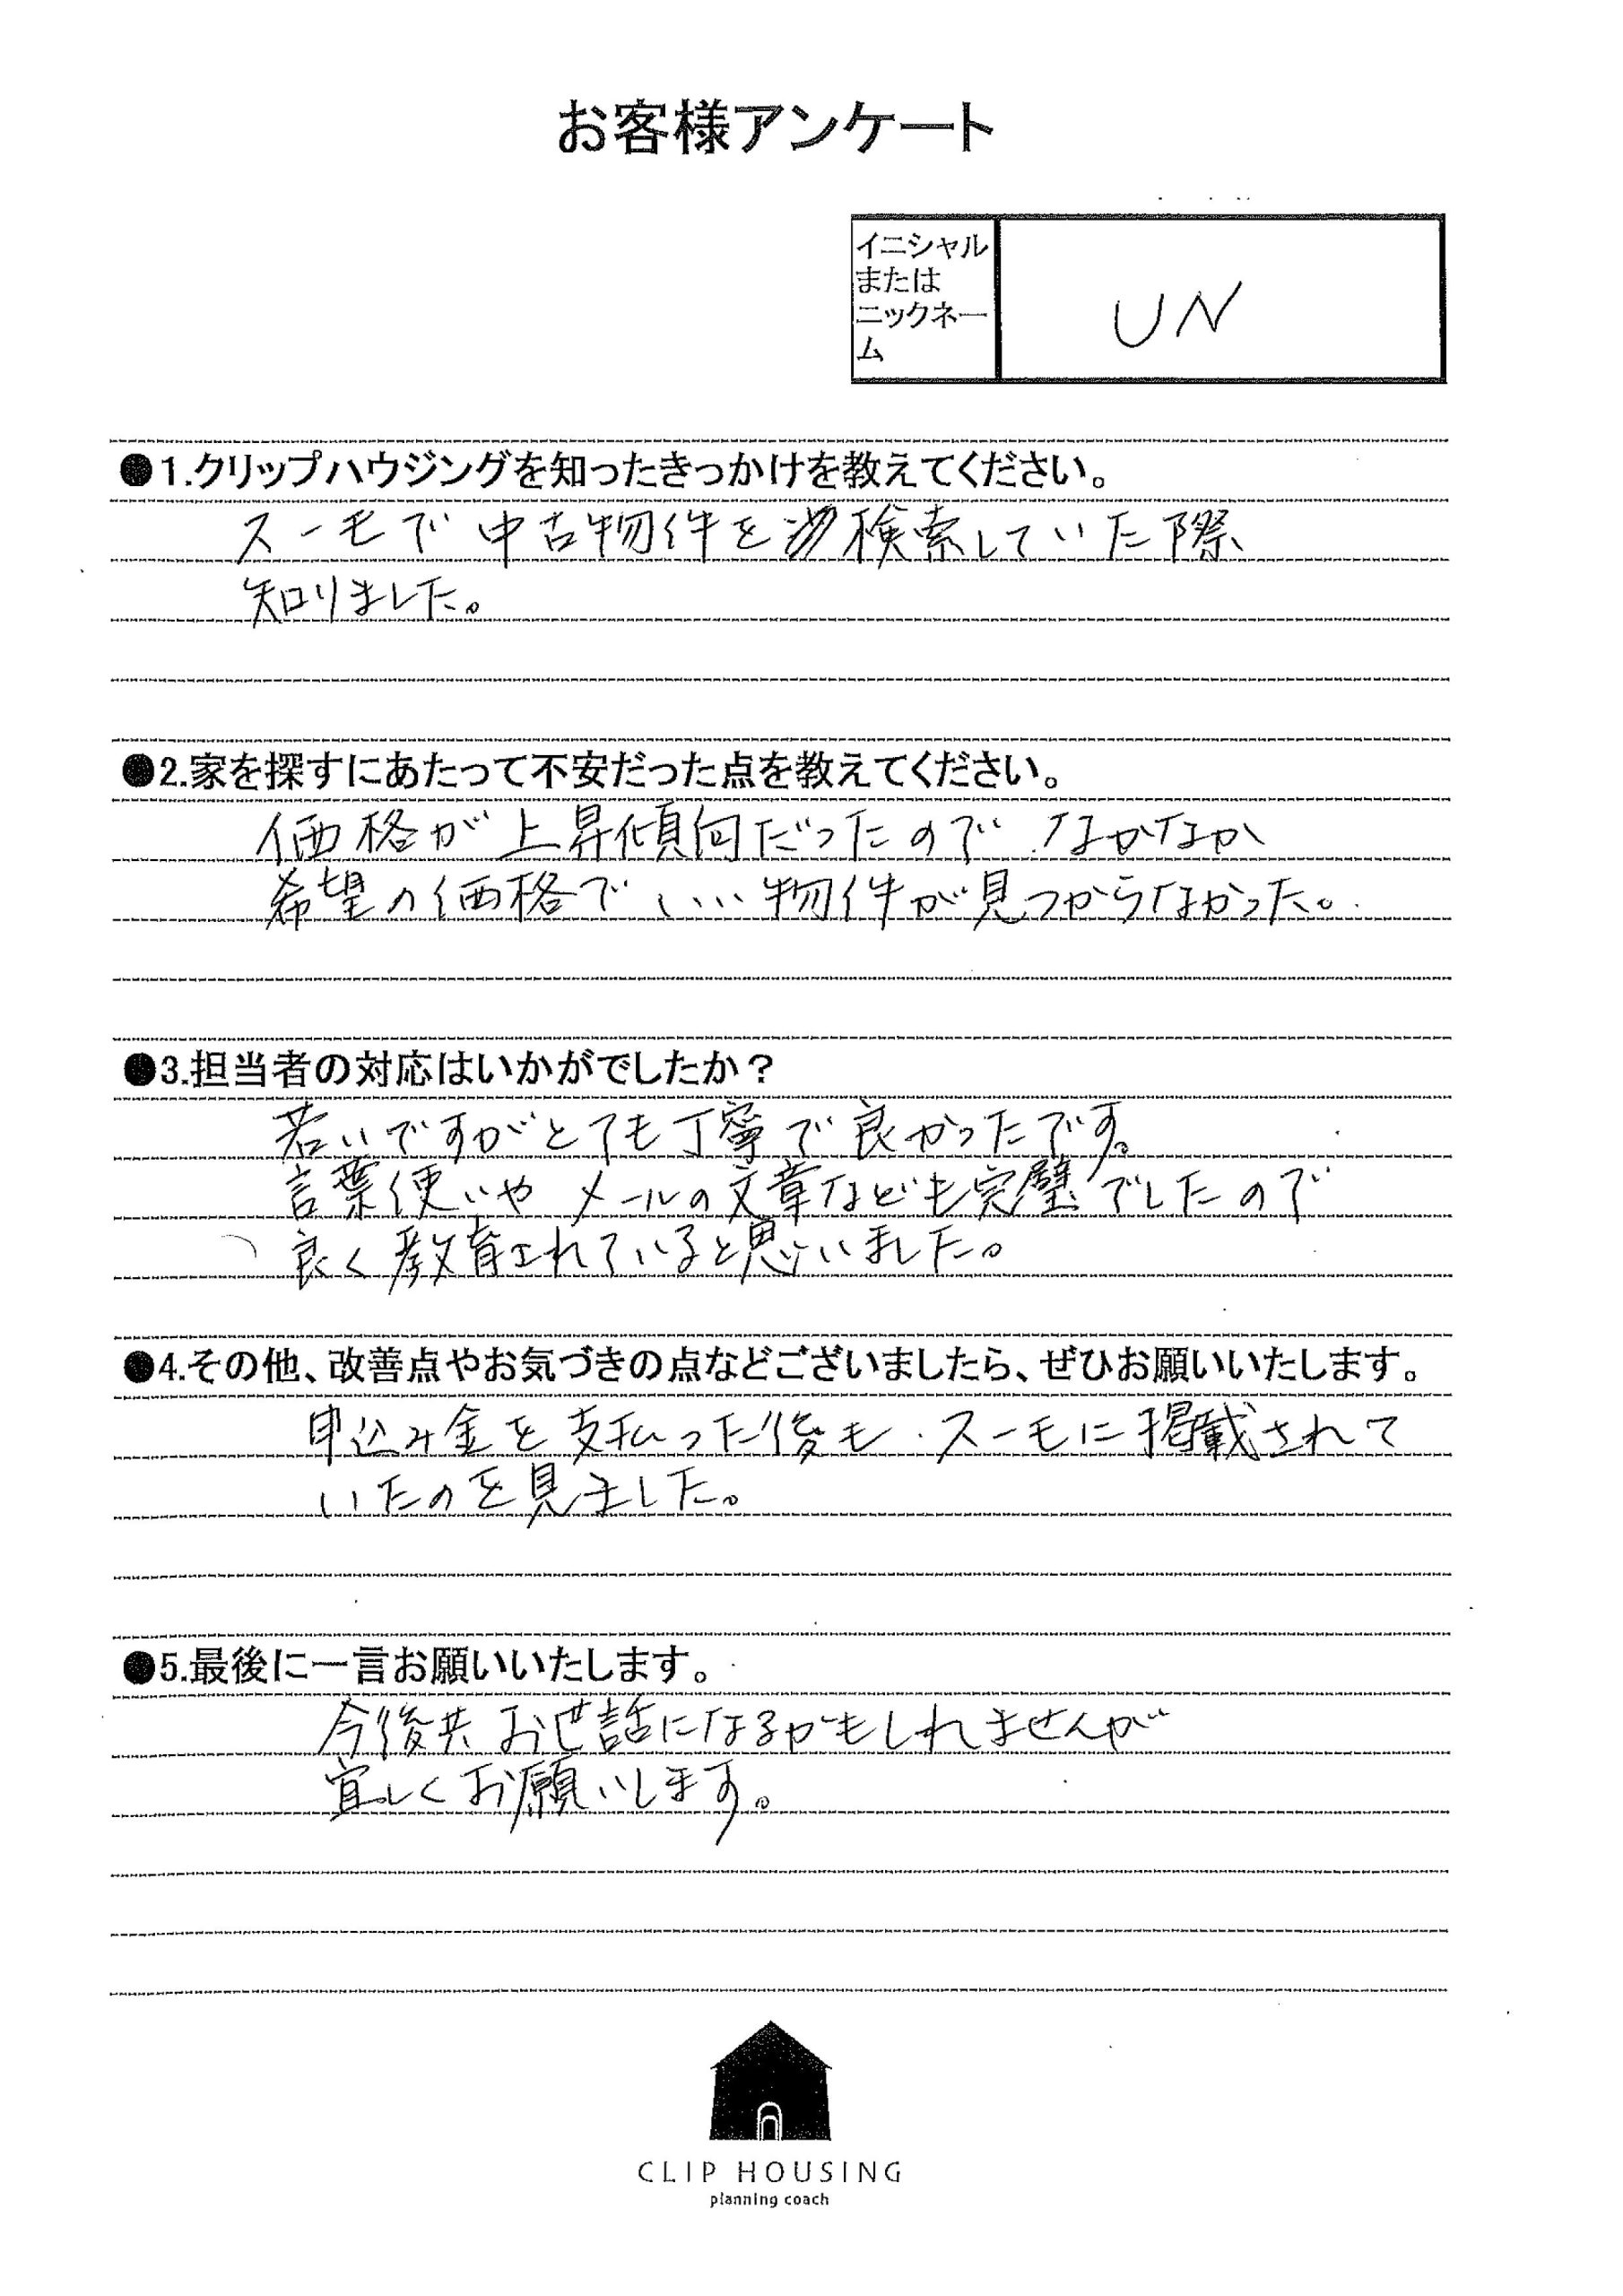 お客様アンケート
イニシャル
または
ニックネー
ム
UN
●1.クリップハウジングを知ったきっかけを教えてください。
スーモで中古物件を検索していた際、
知りました。
●2.家を探すにあたって不安だった点を教えてください。
価格が上昇傾向だったので なかなか
希望の価格で いい物件が見つからなかった。
●3.担当者の対応はいかがでしたか？
若いですがとても丁寧で良かったです。
言葉使いや メールの文章なども完璧でしたので
良く教育されていると思いました。
●4.その他、改善点やお気づきの点などございましたら、ぜひお願いいたします。
申込み金を支払った後も スーモに掲載されて
いたのを見ました。
●5.最後に一言お願いいたします。
今後共 お世話になるかもしれませんが
宜しくお願いします。
CLIP HOUSING
planning coach